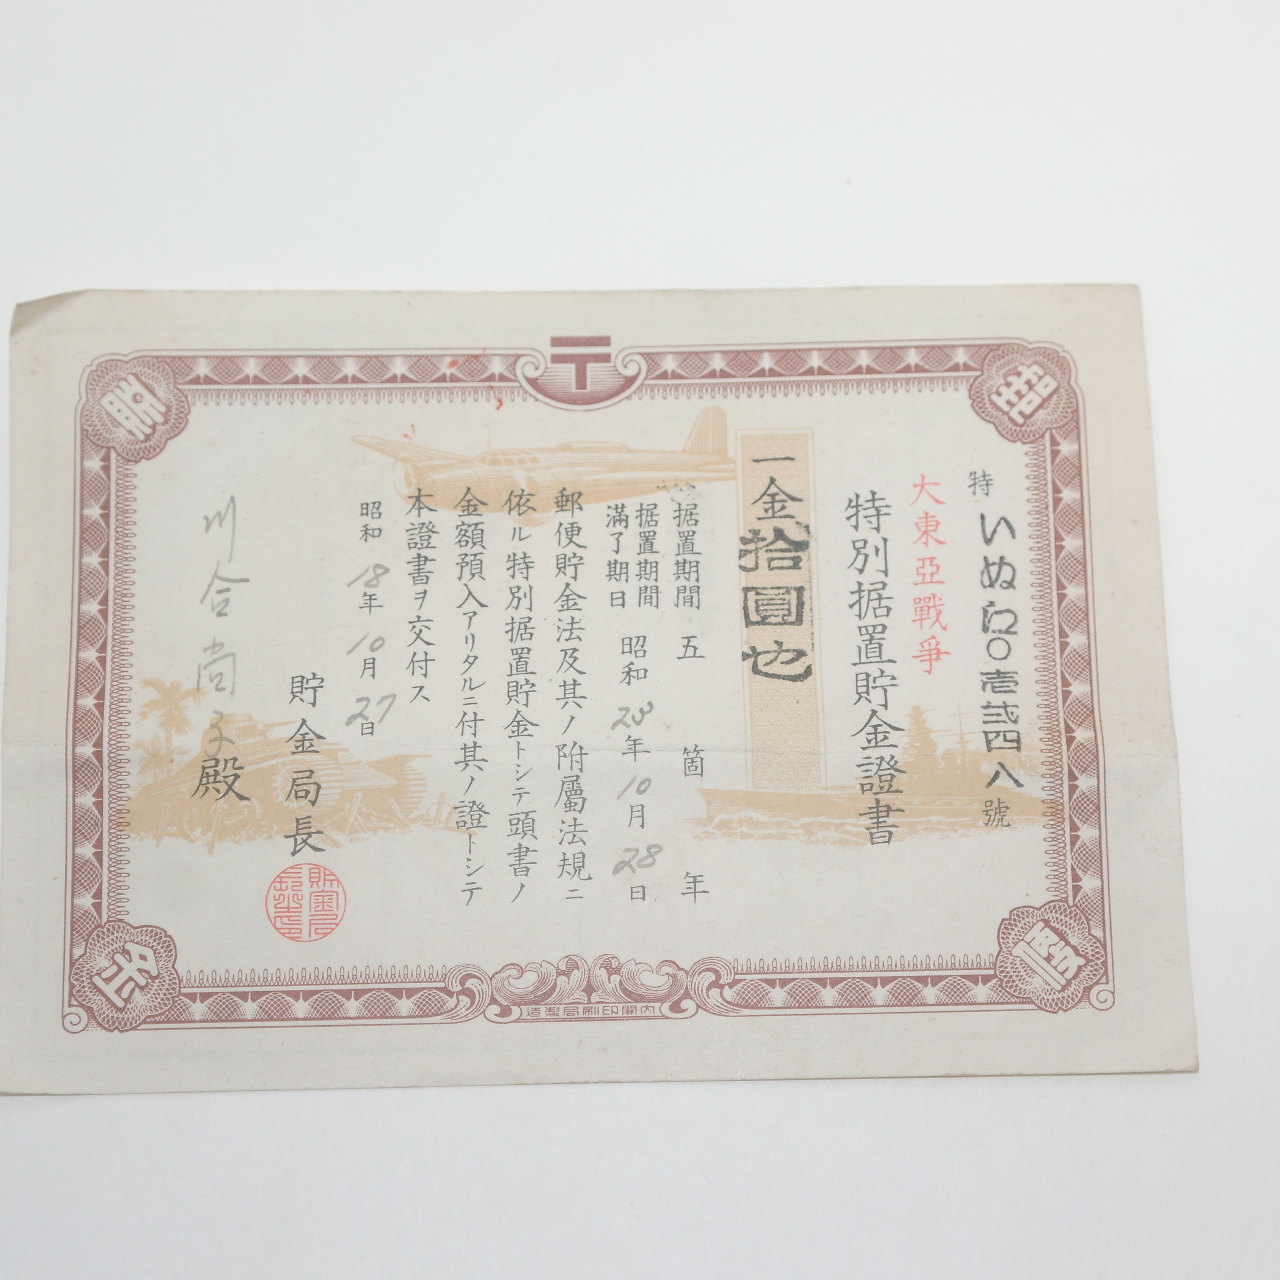 特いぬに〇壱弐四八號
大東亞戰爭
特別据置貯金證書
一金拾圓也
据置期間 五箇年
据置期間滿了期日 昭和 年10月28日
郵便貯金法及其ノ附屬法規ニ
依ル特別据置貯金トシテ頭書ノ
金額預入アリタルニ付其ノ證トシテ
本證書ヲ交付ス
昭和18年10月27日
貯金局長
貯金局長之印
川合尚子殿
〒
內閣印刷局製造